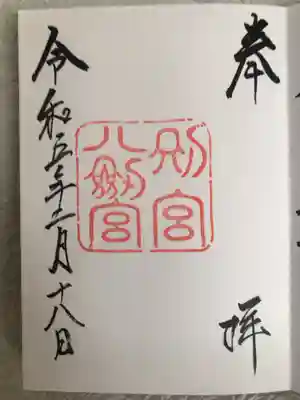 奉拝
別宮
八剱宮
令和五年十一月十八日